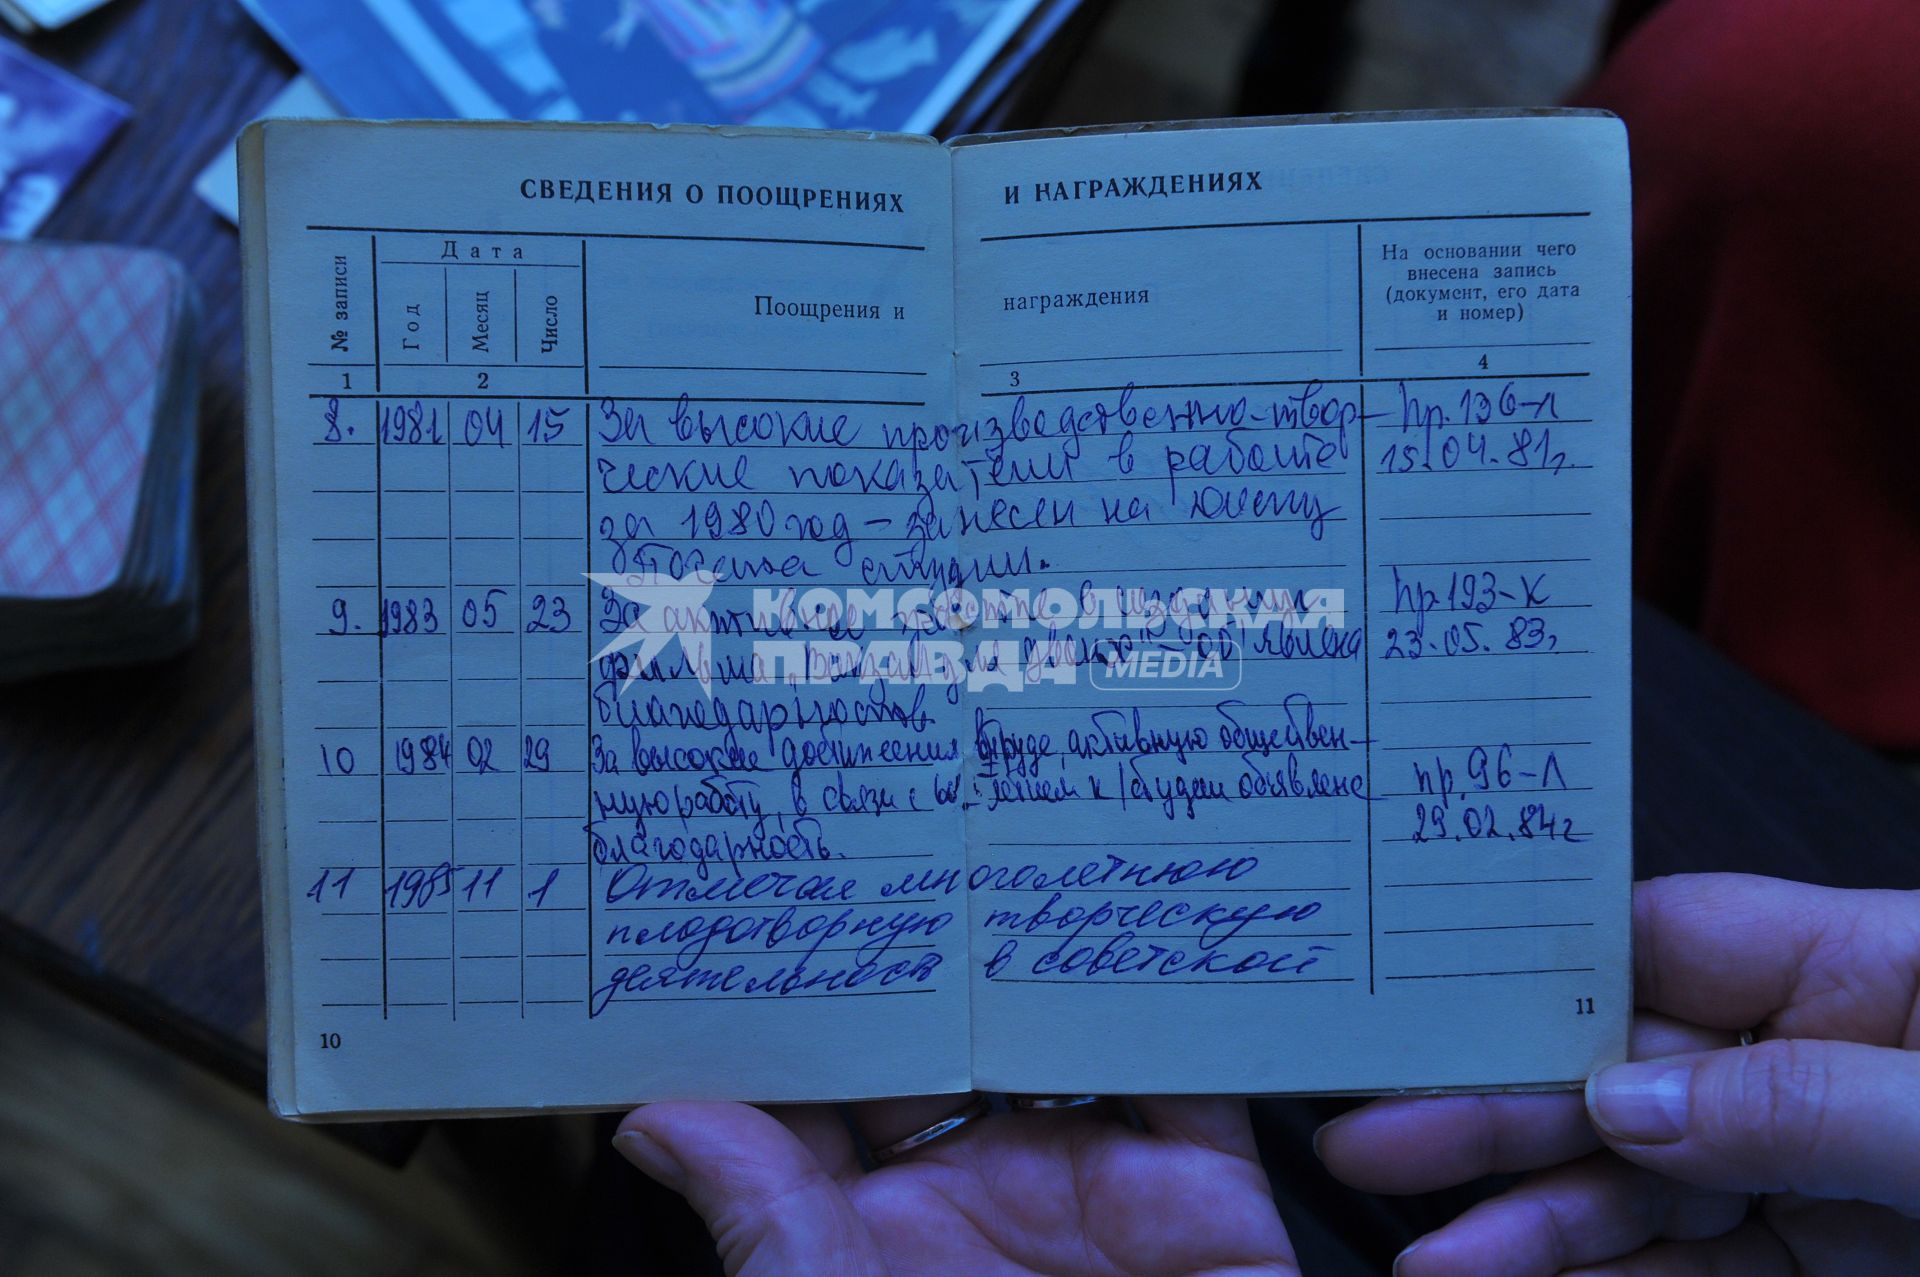 СВЕДЕНИЯ О ПООЩРЕНИЯХ И НАГРАЖДЕНИЯХ
№ записи
Дата
Год
Месяц
Число
Поощрения и награждения
На основании чего
внесена запись
(документ, его дата
и номер)
1 2 3 4
8. 1981 04 15 За высокие производственно-твор- пр. 136-л
ческие показатели в работе 15.04.81г.
за 1980 год – занесен на
Почета студии.
9. 1983 05 23 За активное в создании пр. 193-к
фильма „Вокзал для двоих" – объявлена 23.05.83г.
благодарность.
10 1984 02 29 За высокие достижения в труде, активную обществен- пр. 96-л
ную работу, в связи с к/студии объявлена 29.02.84г
благодарность.
11 1985 11 1 Отмечая многолетнюю
плодотворную творческую
деятельность в советской
10
11
КОМСОМОЛЬСКАЯ
ПРАВДА MEDIA